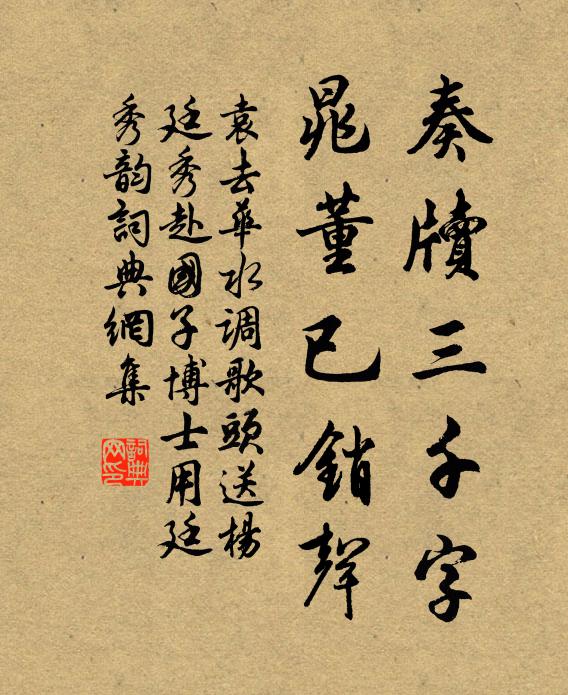 奏牘三千字
晁董已銷聲
袁去華水调歌頭送楊
廷秀赴國子博士用廷
秀韵詞典網集
詞典网印